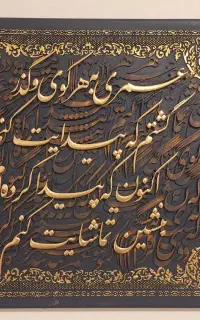 عمری به هر کوی و گذر
گشتم که پیدایت کنم
اکنون که پیدا کرده‌ام
بنشین تماشایت کنم